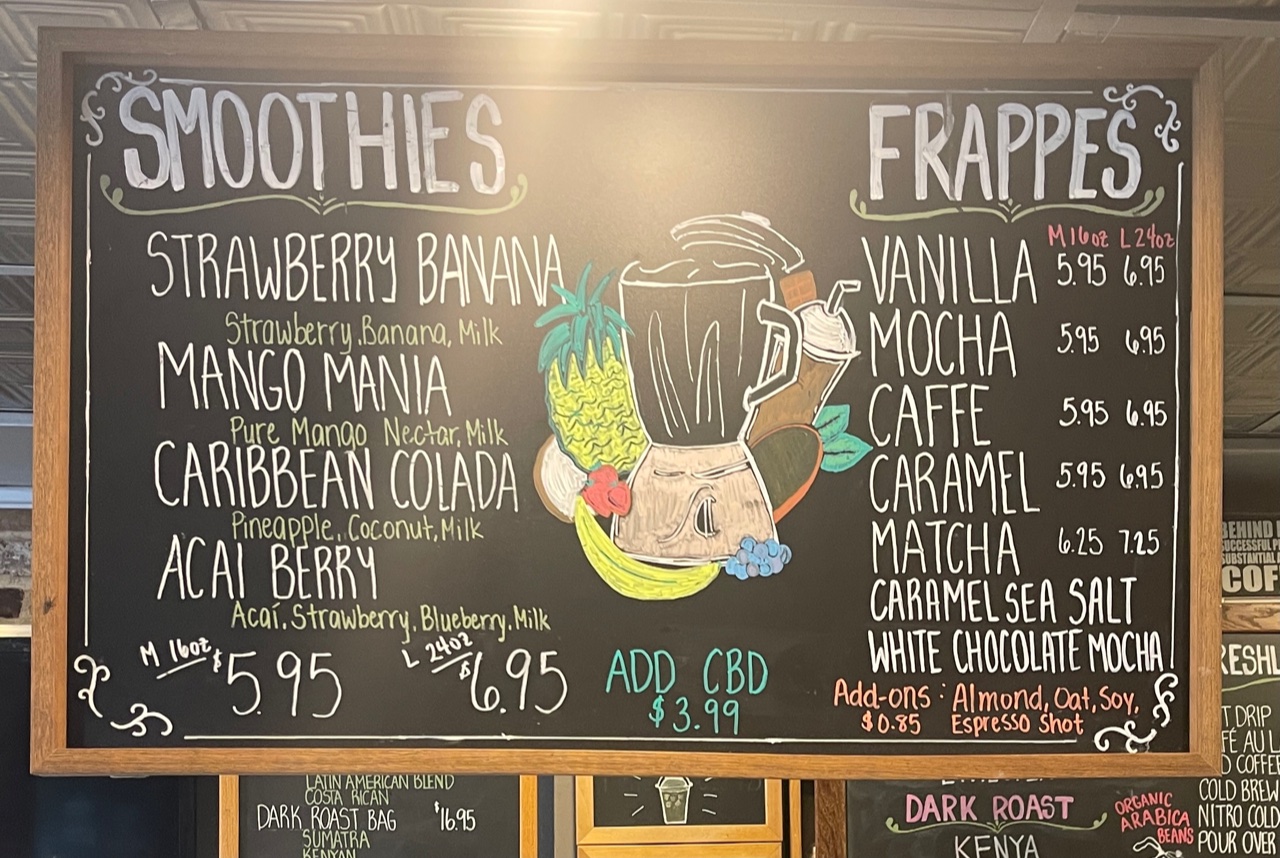 SMOOTHIES
STRAWBERRY BANANA
Strawberry, Banana, Milk
MANGO MANIA
Pure Mango Nectar, Milk
CARIBBEAN COLADA
Pineapple, Coconut, Milk
ACAI BERRY
Acaí, Strawberry, Blueberry, Milk
M 16oz $5.95 L 24oz $6.95
ADD CBD
$3.99
FRAPPES
M 16oz L 24oz
VANILLA 5.95 6.95
MOCHA 5.95 6.95
CAFFE 5.95 6.95
CARAMEL 5.95 6.95
MATCHA 6.25 7.25
CARAMEL SEA SALT
WHITE CHOCOLATE MOCHA
Add-ons: Almond, Oat, Soy,
$0.85 Espresso Shot
LATIN AMERICAN BLEND
COSTA RICAN
DARK ROAST BAG $16.95
SUMATRA
KENYAN
DARK ROAST
KENYA
ORGANIC
ARABICA
BEANS
BEHIND
SUCCESSFUL
SUBSTANTIAL
COF
RESHL
T DRIP
FÉ AU L
D COFFEE
COLD BREW
NITRO COLD
POUR OVER